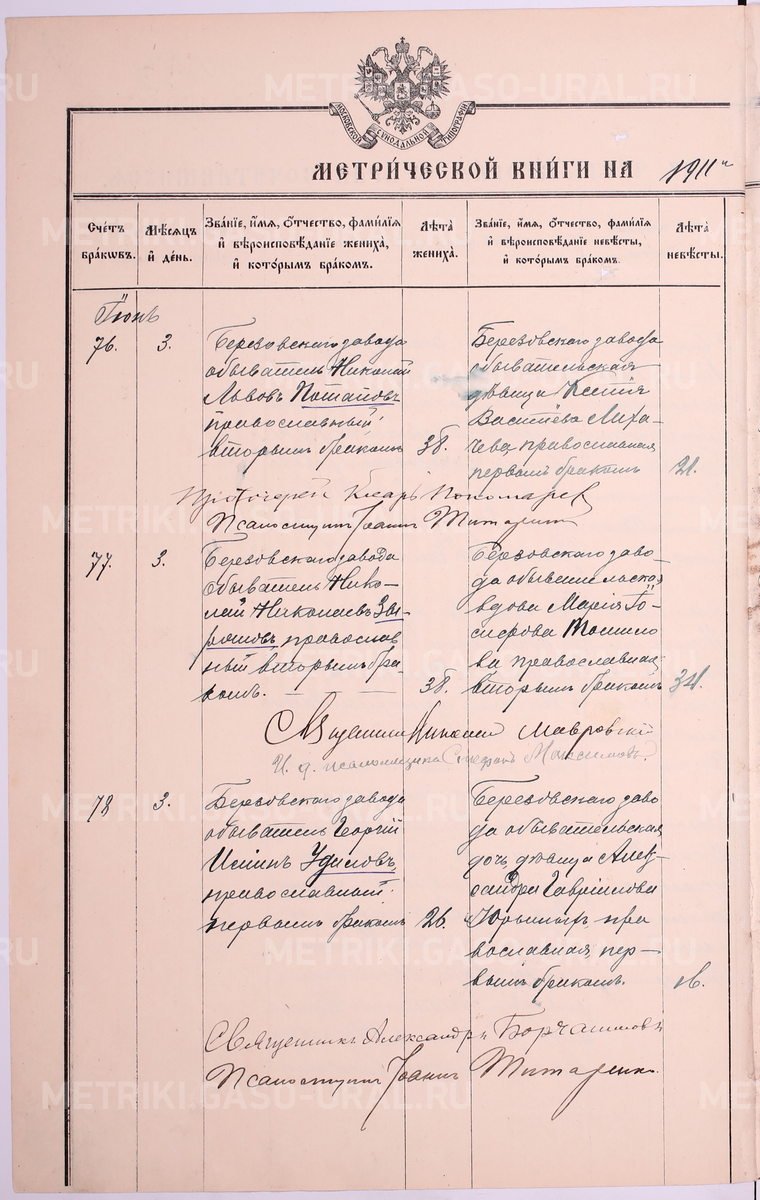 МОСКОВСКОЙ СѴНОДАЛЬНОЙ ТИПОГРАФІИ
МЕТРИ́ЧЕСКОЙ КНИ́ГИ НА 1911
Сче́тъ бра́кѡвъ.
Мѣ́сяцъ и҆ де́нь.
Зва́нїе, и҆́мя, ѻ҆́тчество, фами́лїя и҆ вѣроисповѣ́данїе жениха̀, и҆ кото́рымъ бра́комъ.
Лѣ́та жениха̀.
Зва́нїе, и҆́мя, ѻ҆́тчество, фами́лїя и҆ вѣроисповѣ́данїе невѣ́сты, и҆ кото́рымъ бра́комъ.
Лѣ́та невѣ́сты.
Іюнь
76. 3.
Березовскаго завода
обыватель Николай
Львовъ Потаповъ
православный
вторымъ бракомъ
38.
Березовскаго завода
обывательская
дѣвица Ксенія
Васильева Лиха-
чева, православная
первымъ бракомъ
21.
Протоіерей Пономарев
Псаломщикъ Іоаннъ Титаренко
77. 3.
Березовскаго завода
обыватель Нико-
лай Николаевъ Звы-
православ
ный вторымъ бра-
комъ.
38.
Березовскаго заво-
да обывательская
вдова Марія
православная,
вторымъ бракомъ
34.
Священникъ Николай Мавровскій
И. д. псаломщика Стефанъ Максимовъ.
78 3.
Березовскаго завода
обыватель Георгій
Удиловъ,
православный
первымъ бракомъ
26.
Березовскаго заво
да обывательская
дочь дѣвица Алек-
сандра Гавріилова
пра
вославная, пер-
вымъ бракомъ.
Священникъ Александръ
Псаломщикъ Іоаннъ Титаренко.
METRIKI.GASO-URAL.RU